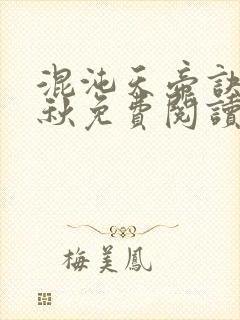 混沌天帝訣
秋免費閱讀
梅美鳳